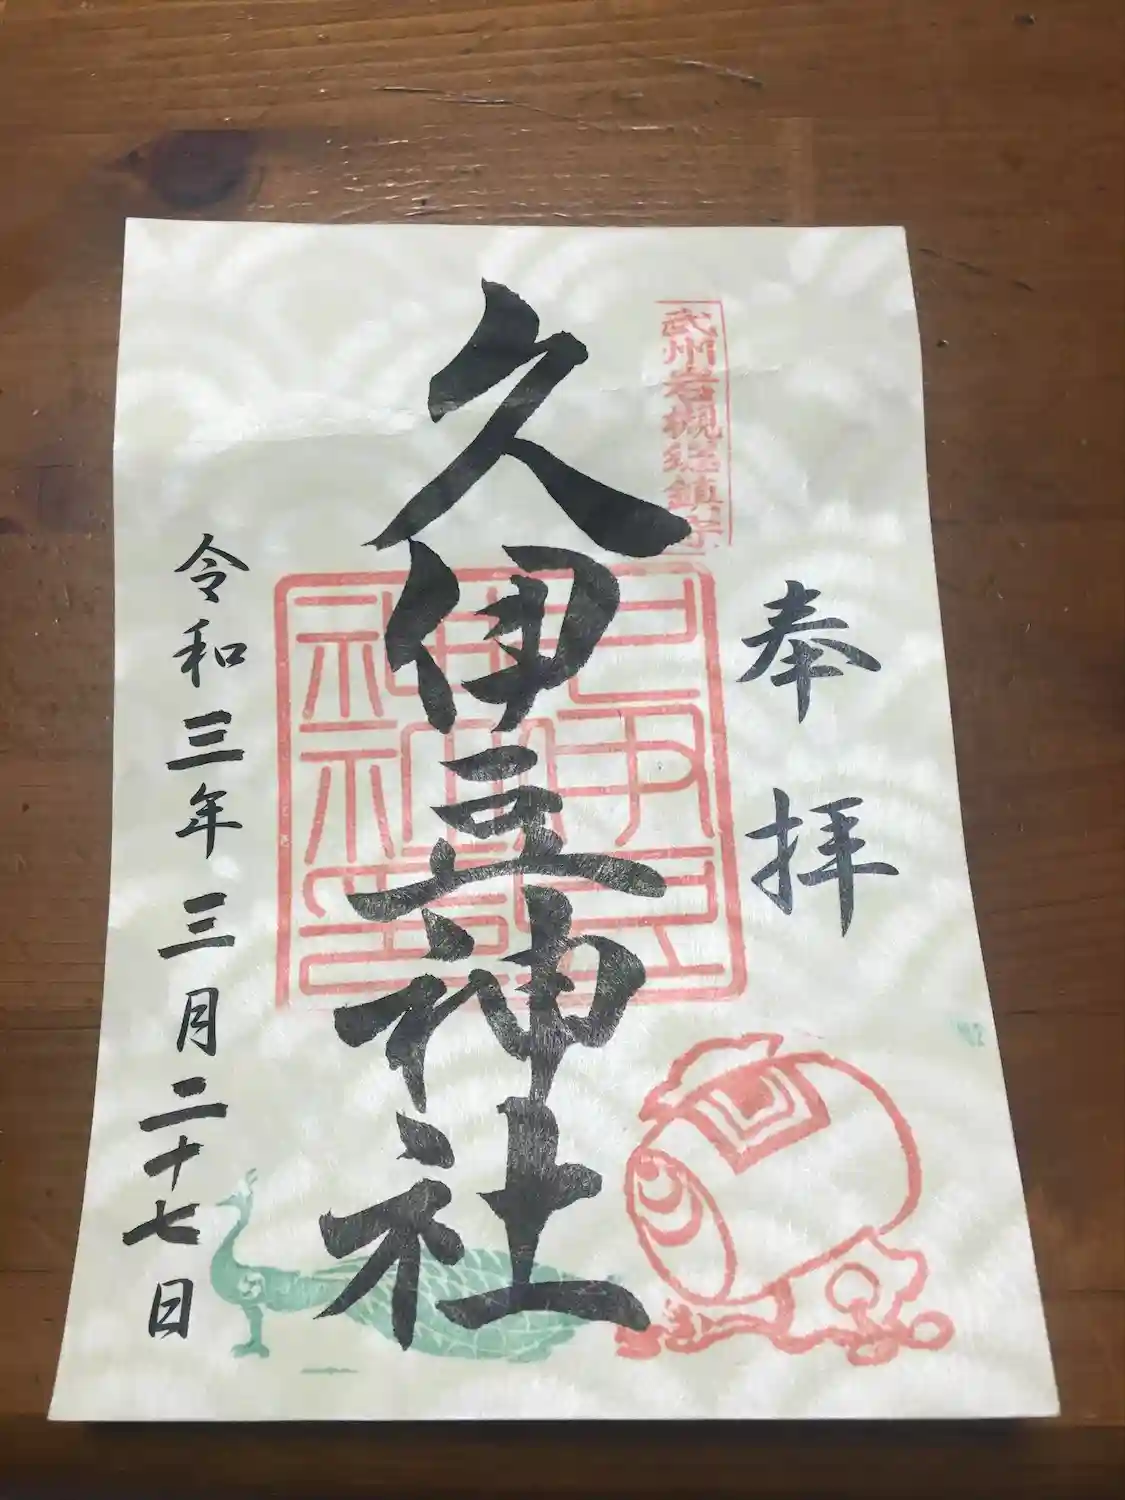 武州岩槻総鎮守
奉拝
久伊豆神社
令和三年三月二十七日